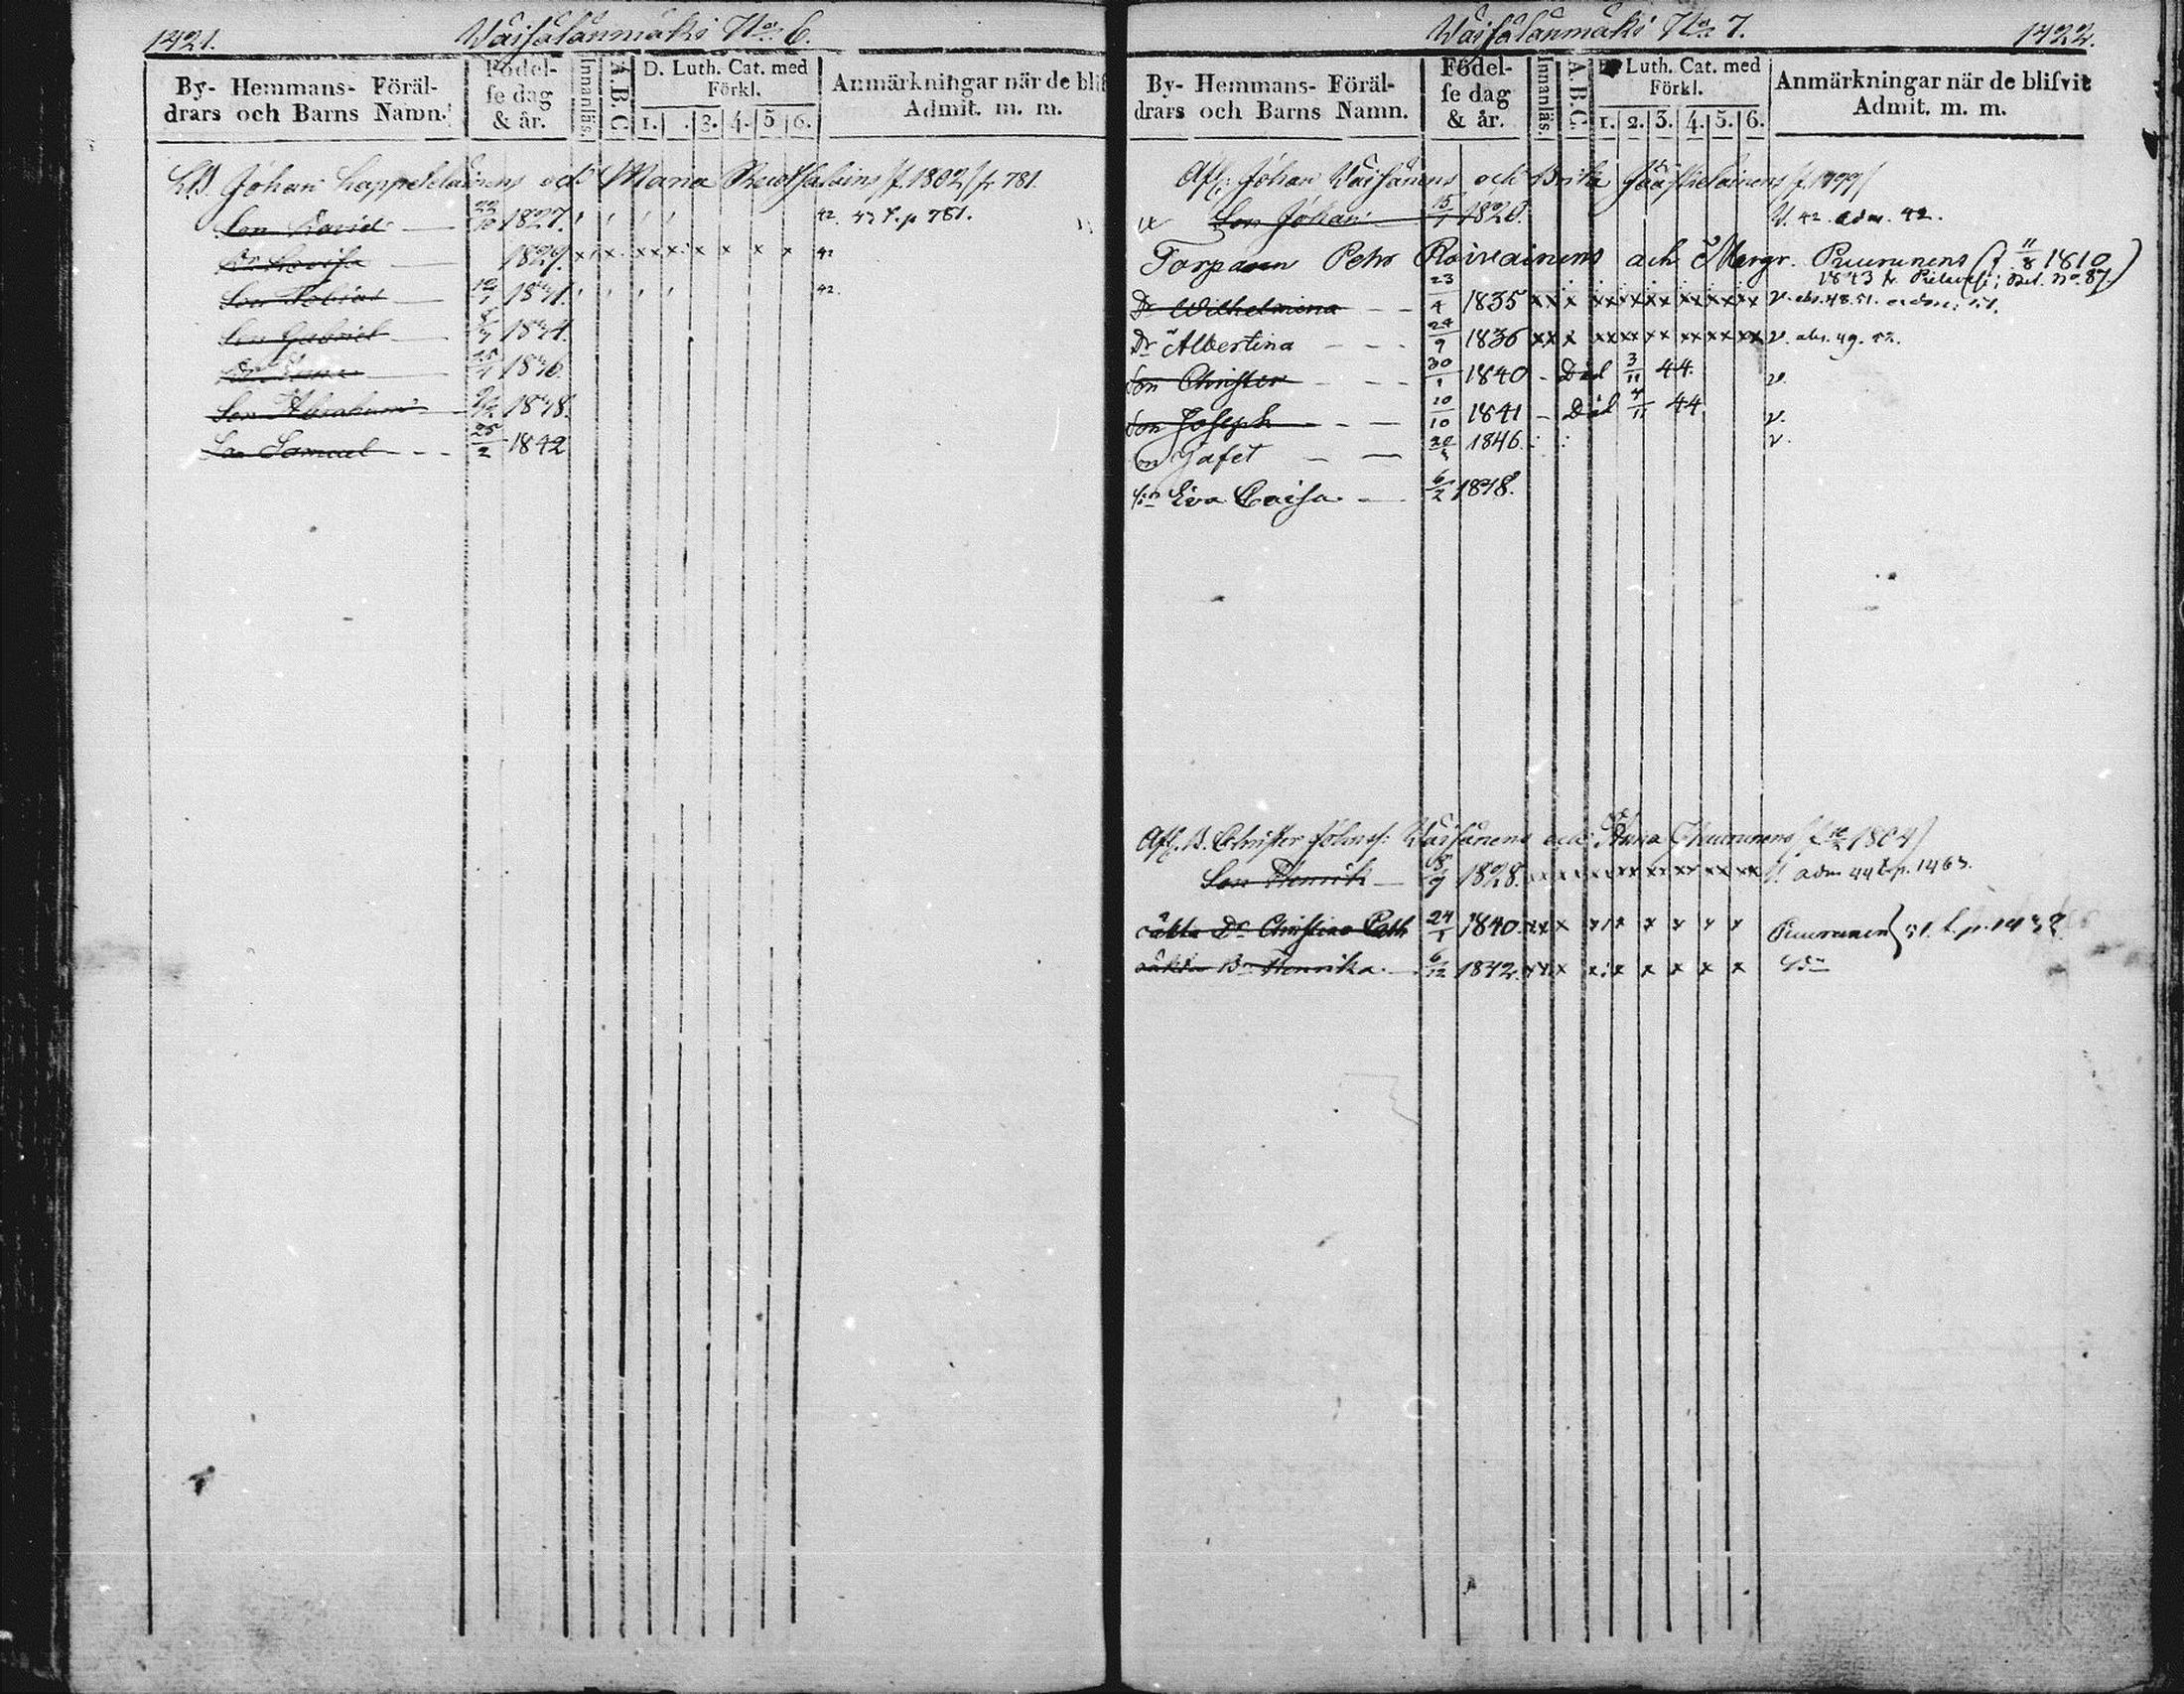 1421. Väisälänmäki No 6.
By- Hemmans- Föräldrars och Barns Namn.
Födelse dag & år.
Innanläs.
A.B.C.
D. Luth. Cat. med Förkl.
1. 3. 4. 5 6.
Anmärkningar när de blif
Admit. m. m.
Johan Lappeteläinens och Maria f. 1802 fr. 781.
Son David 22/10 1827. 42. 43 t. p 781.
Dr Lovisa 1829. x x x x x x x x x 42
Son Tobias 1831. 42.
Son Gabriel 1834.
Dr 1836
Son Abraham 1838.
Son Samuel - - 25/2 1842
Väisälänmäki No 7. 1422.
By- Hemmans- Föräldrars och Barns Namn.
Födelse dag & år.
Innanläs.
A.B.C.
Luth. Cat. med Förkl.
1. 2. 3. 4. 5. 6.
Anmärkningar när de blifvit
Admit. m. m.
Afl: Johan Väisänens och Brita Jääskeläinens f. 1799
Son Johan 15/1 1826. V. 42. adm. 42.
Torparen Petr Roivainens och Margr. Puurunens (f 11/8 1810)
1843 fr. Pielavesi; Bet. No 87.
Dr Wilhelmina - - 23/4 1835 xx x xx xx xx xx xx xx v. abs. 48. 51. 51.
Dr Albertina - - - 24/9 1836 xx x xx xx xx xx xx xx v. abs. 49. 52.
Son Christer - - - 30/1 1840 - Död 3/11 44. v.
Son Joseph - - 10/10 1841 - Död 4/11 44 v.
Son Jafet - - 1846. v.
Eva Caisa - 6/2 1848.
Afl. B. Christer Johans: Väisänens och Anna Puurunens 1804
Son Henrik 1828. adm 44 t. p. 1463.
oäkta Dr Christina Cath 24/1 1840. xx x x x x x x x Puurunen 51. t. p. 1432
oäkta Dr Henrika 6/12 1842. xx x x x x x x x